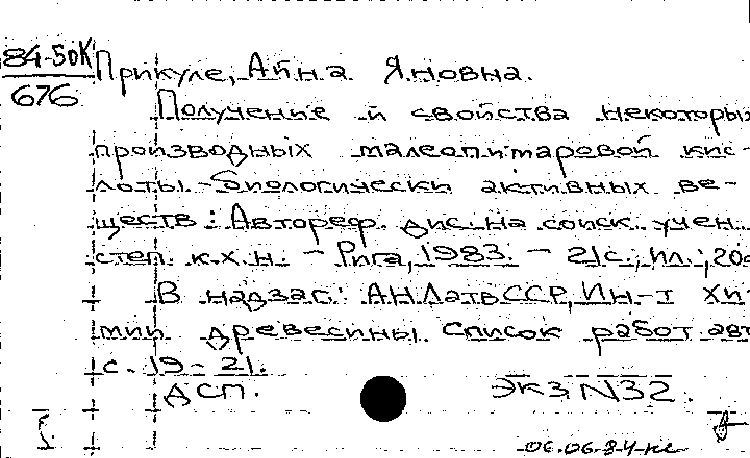 84-50к
676
Прикуле, Айна Яновна.
Получение и свойства некоторых
производных малеопимаровой кис-
лоты - биологически активных ве-
ществ: Автореф. дис. на соиск. учен.
степ. к.х.н. - Рига, 1983. - 21с.; ил.; 20с
В надзаг.: АН ЛатвССР, Ин-т хи-
мии древесины. Список работ авт
с. 19-21.
ДСП. Экз. N32.
06.06.84